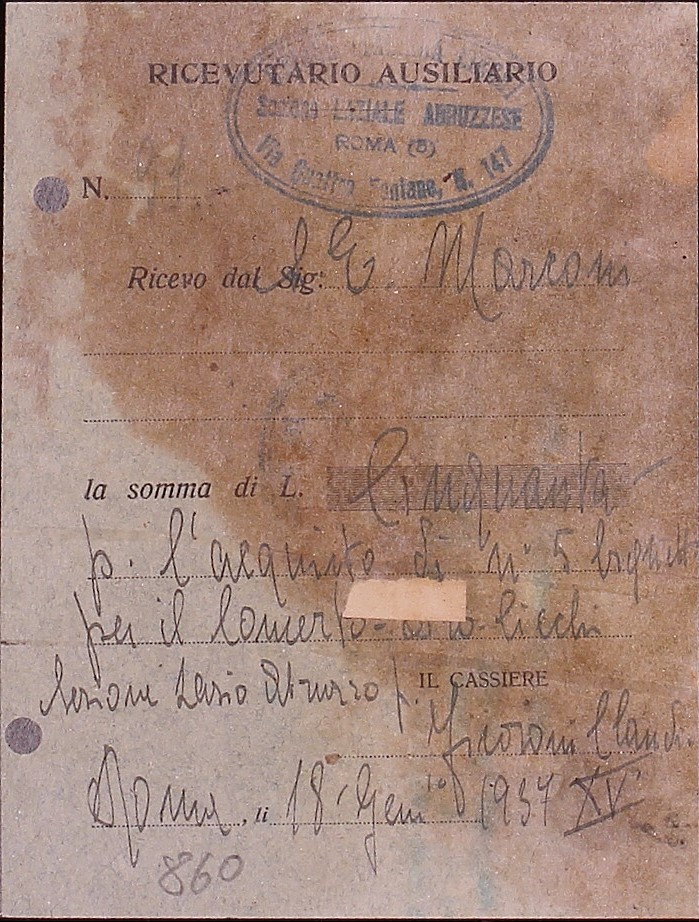 RICEVUTARIO AUSILIARIO
LAZIALE ABRUZZESE
ROMA (5)
Via Quattro Fontane, N. 147
N.
Ricevo dal Sig: S. E. Marconi
la somma di L. Cinquanta
p. l'acquisto di n° 5 bigliett
per il Concerto - pro-Ciechi
Sezione Lazio Abruzzo p. IL CASSIERE
Roma, li 18 Gen 1937 XV
860